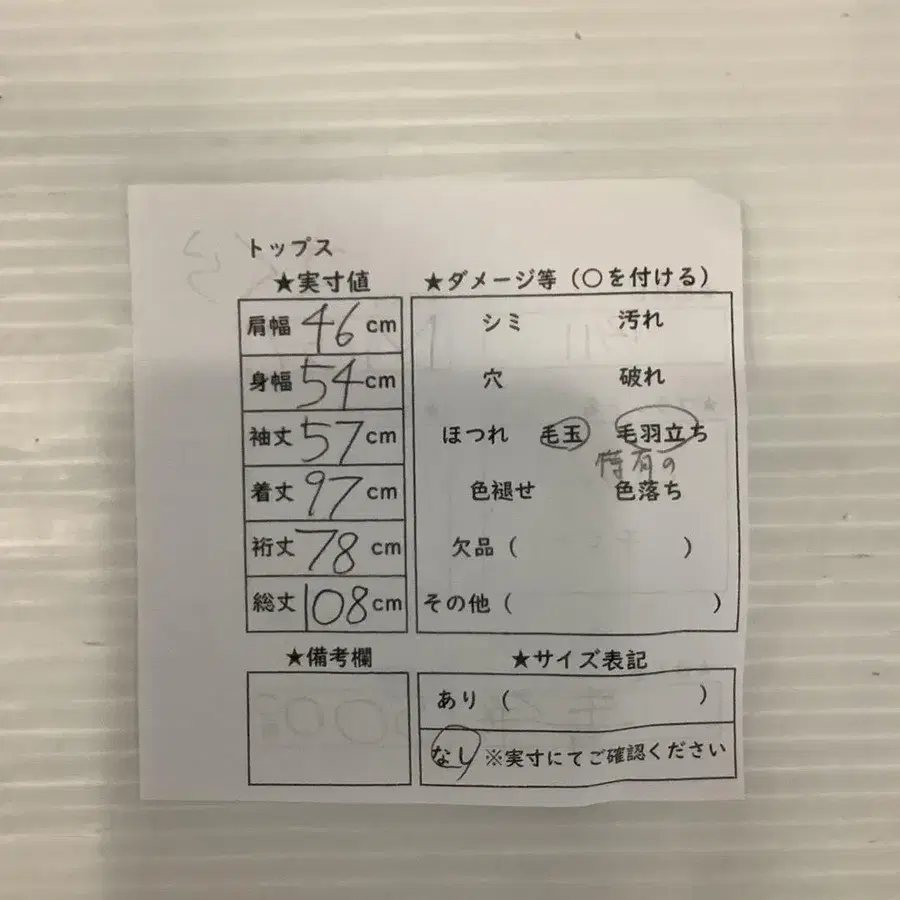 トップス
★実寸値
肩幅 46 cm
身幅 54 cm
袖丈 57 cm
着丈 97 cm
裄丈 78 cm
総丈 108 cm
★備考欄
★ダメージ等（○を付ける）
シミ 汚れ
穴 破れ
ほつれ 毛玉 毛羽立ち
特有の
色褪せ 色落ち
欠品（ ）
その他（ ）
★サイズ表記
あり（ ）
なし ※実寸にてご確認ください